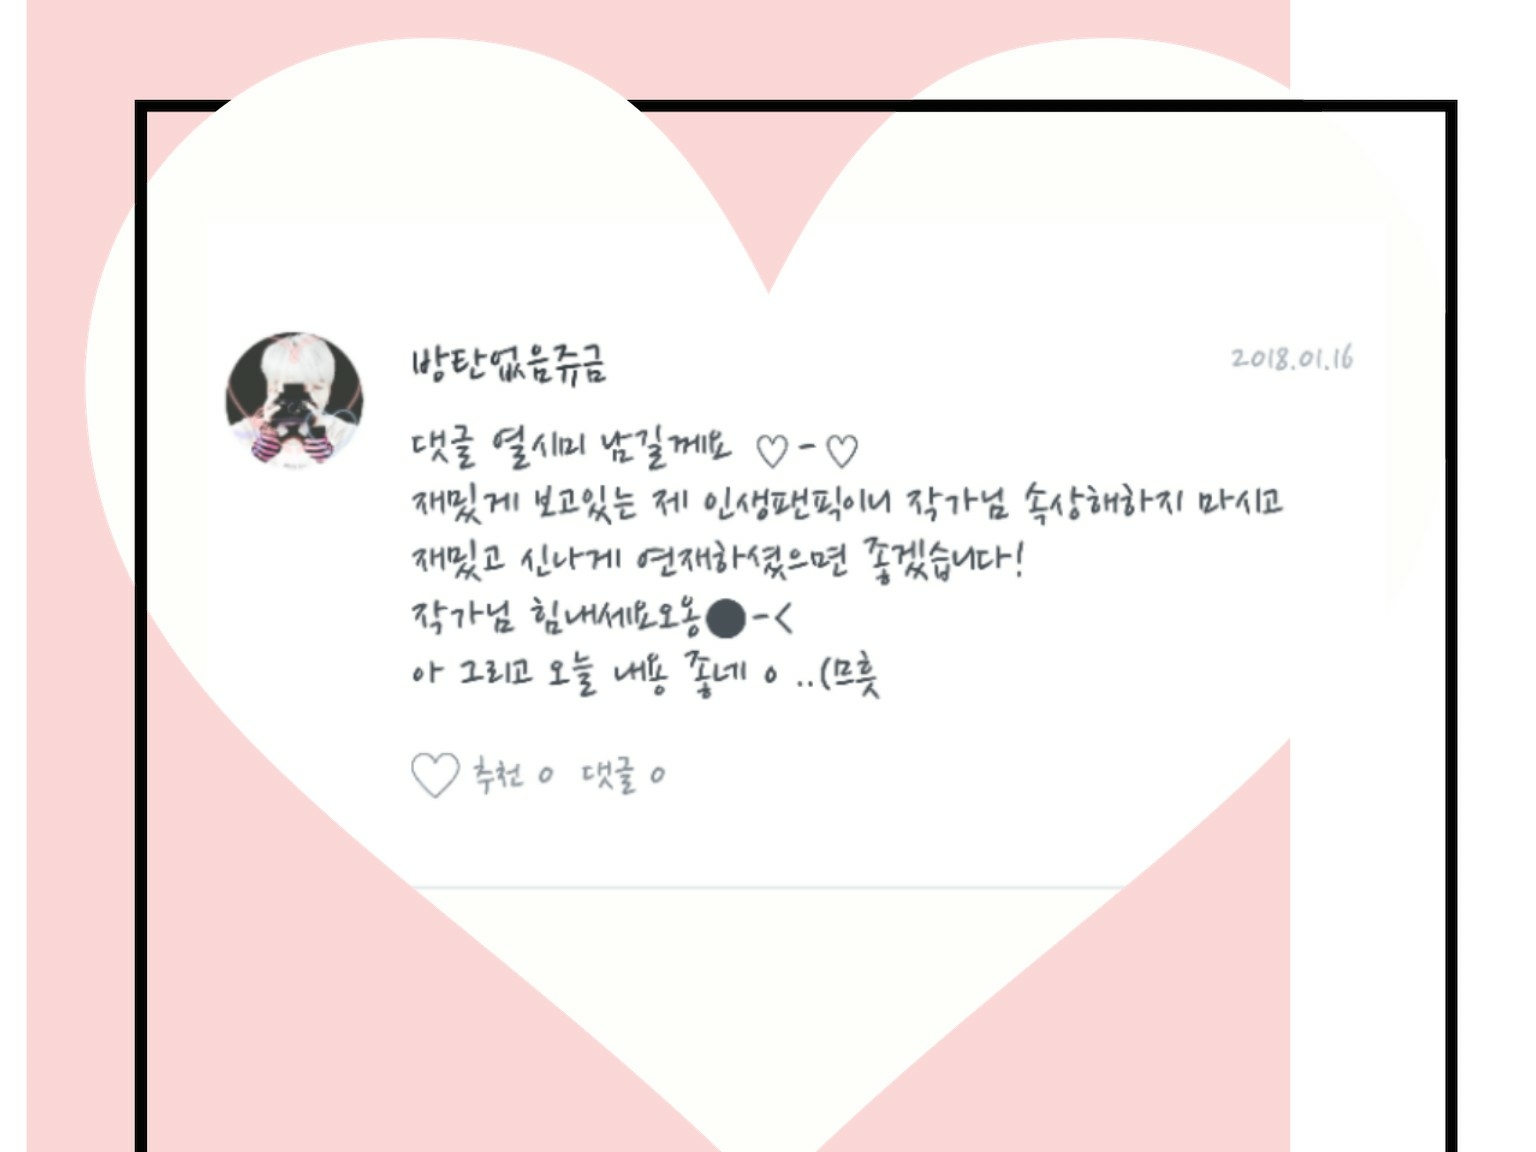 방탄없음쥬금
2018.01.16
댓글 열시미 남길께요 ♡-♡
재밌게 보고있는 제 인생팬픽이니 작가님 속상해하지 마시고
재밌고 신나게 연재하셨으면 좋겠습니다!
작가님 힘내세요오옹●-<
아 그리고 오늘 내용 좋네 ㅇ ..(므흣
♡ 추천 0 댓글 0